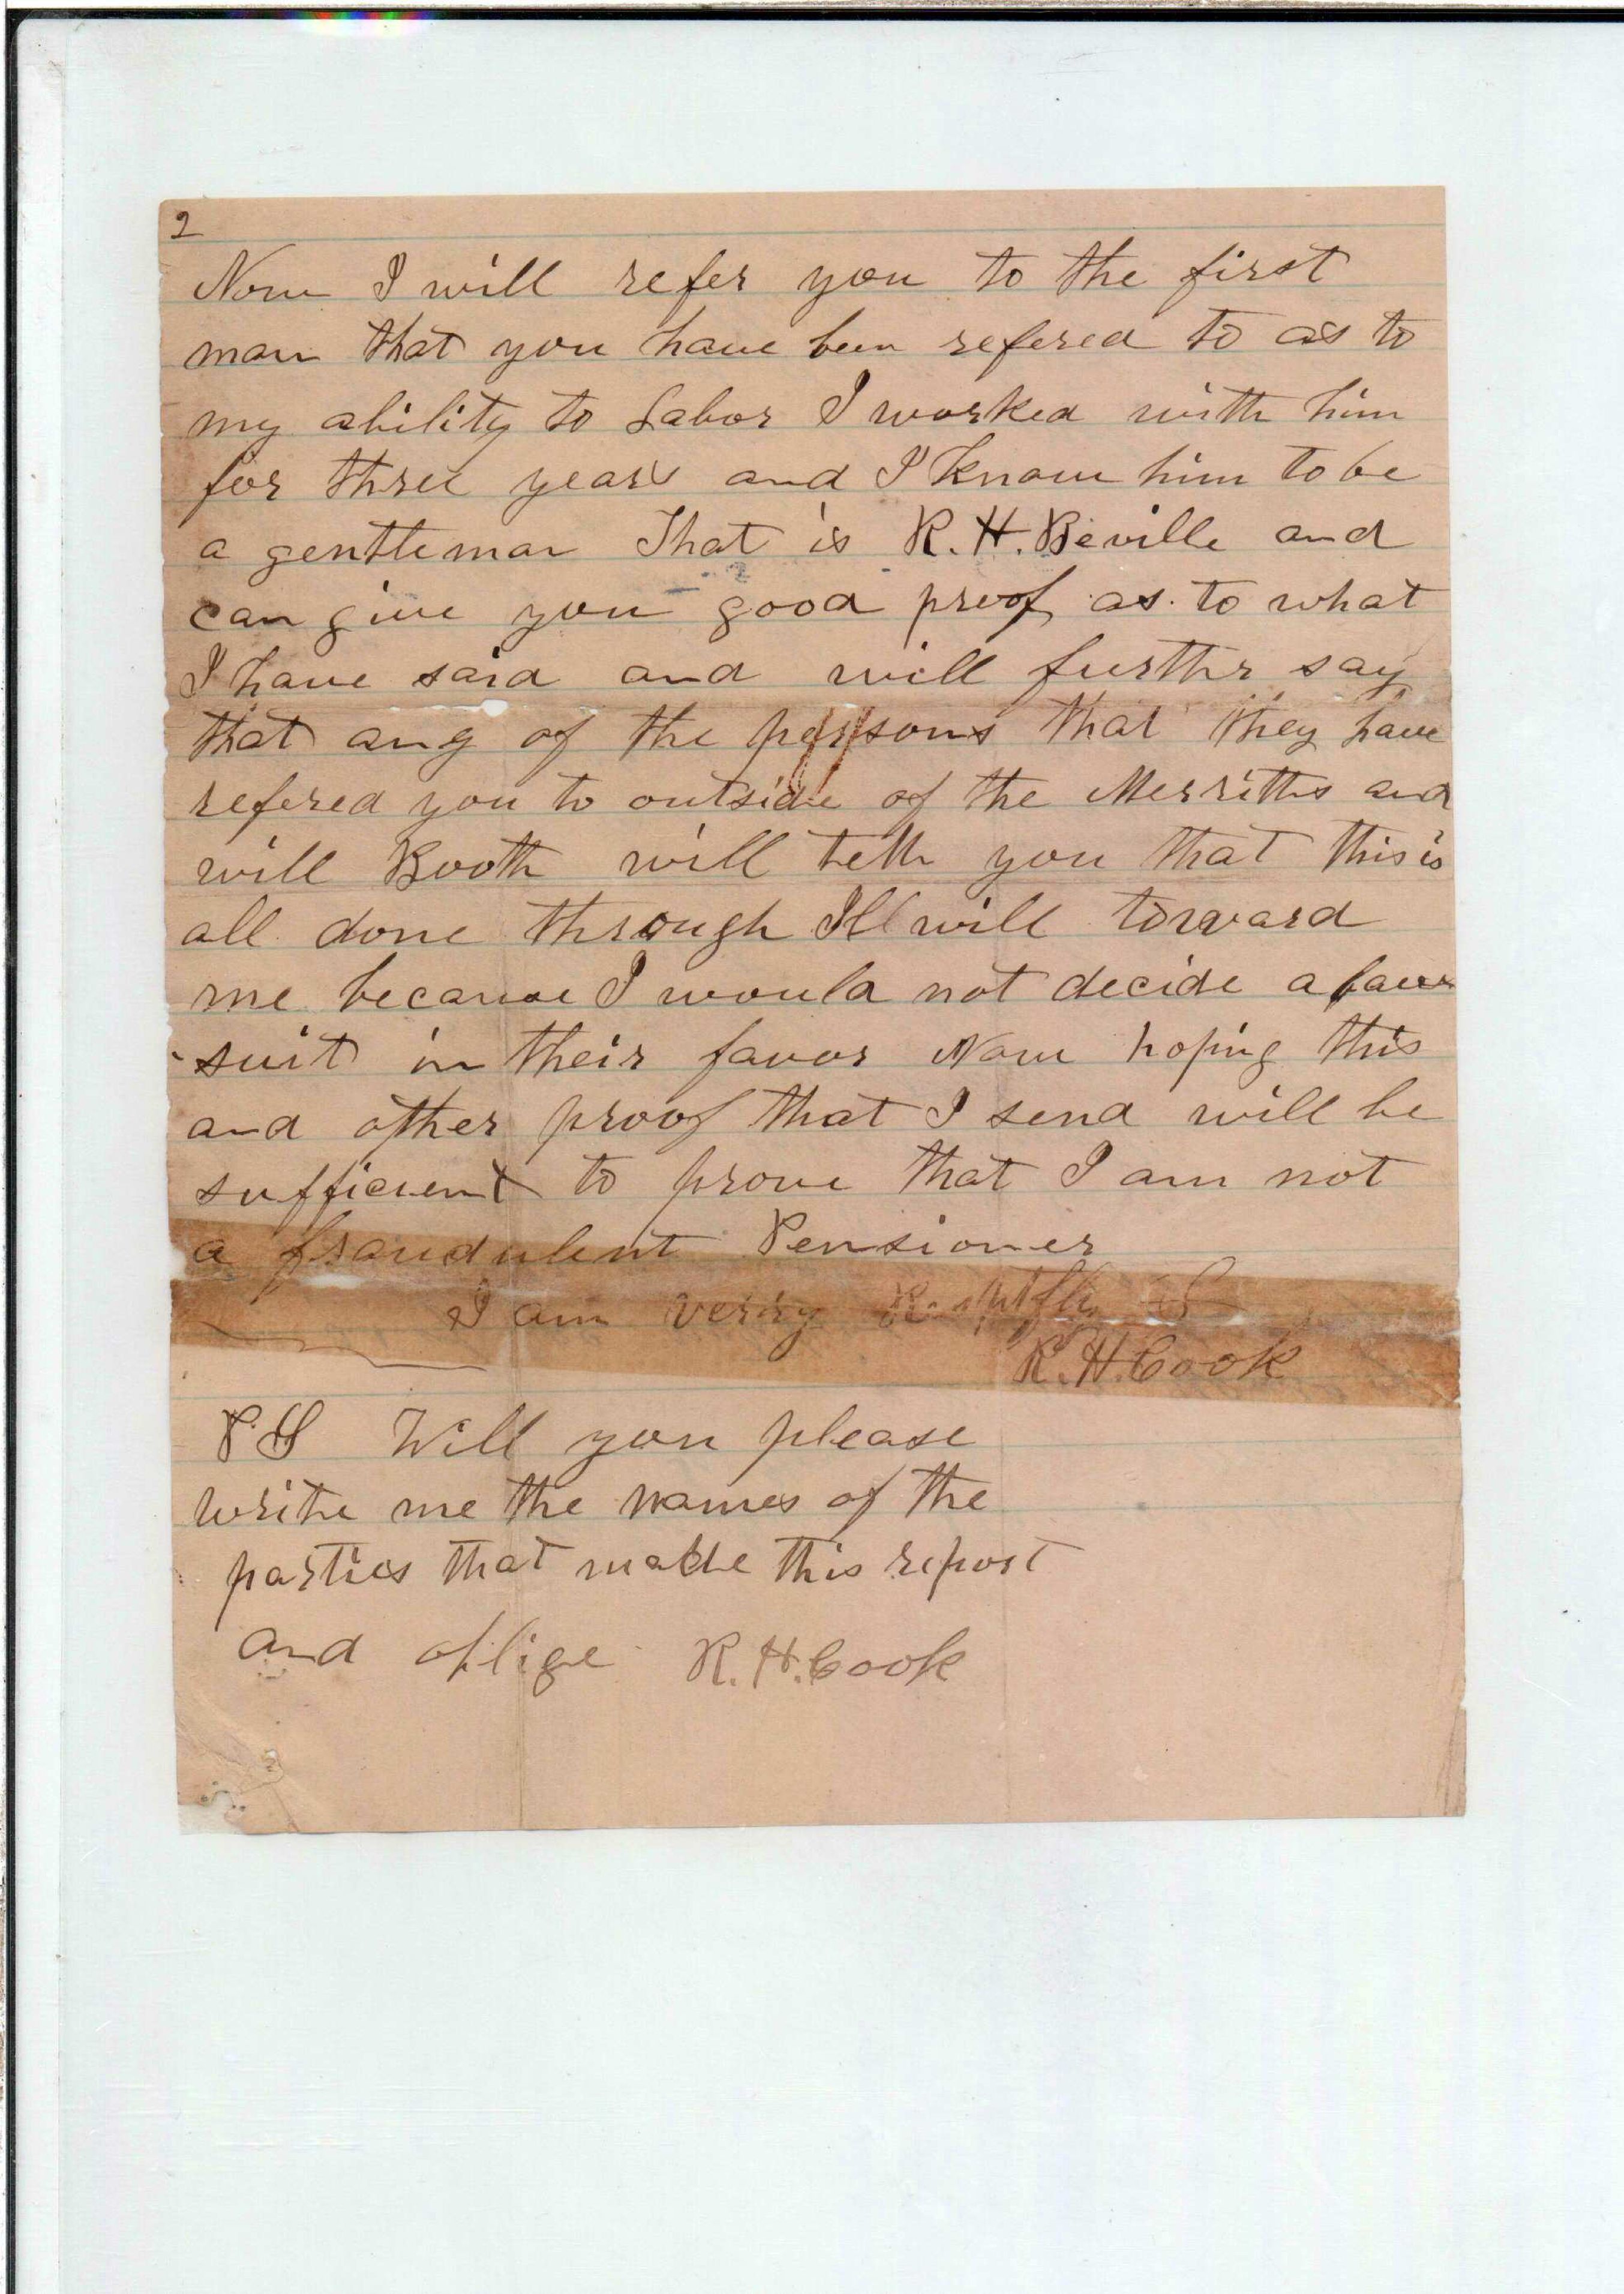 2
Now I will refer you to the first
man that you have been refered to as to
my ability to Labor I worked with him
for three years and I know him to be
a gentleman That is R. H. Beville and
can give you good proof as to what
I have said and will further say
that any of the persons that they have
refered you to outside of the Merritts and
will Booth will tell you that this is
all done through Ill will torward
me because I would not decide a law
suit in their favor Now hoping this
and other proof that I send will be
sufficient to prove that I am not
a fraudulent Pensioner
I am verry
R. H. Cook
P.S Will you please
write me the names of the
parties that made this report
and oblige R. H. Cook